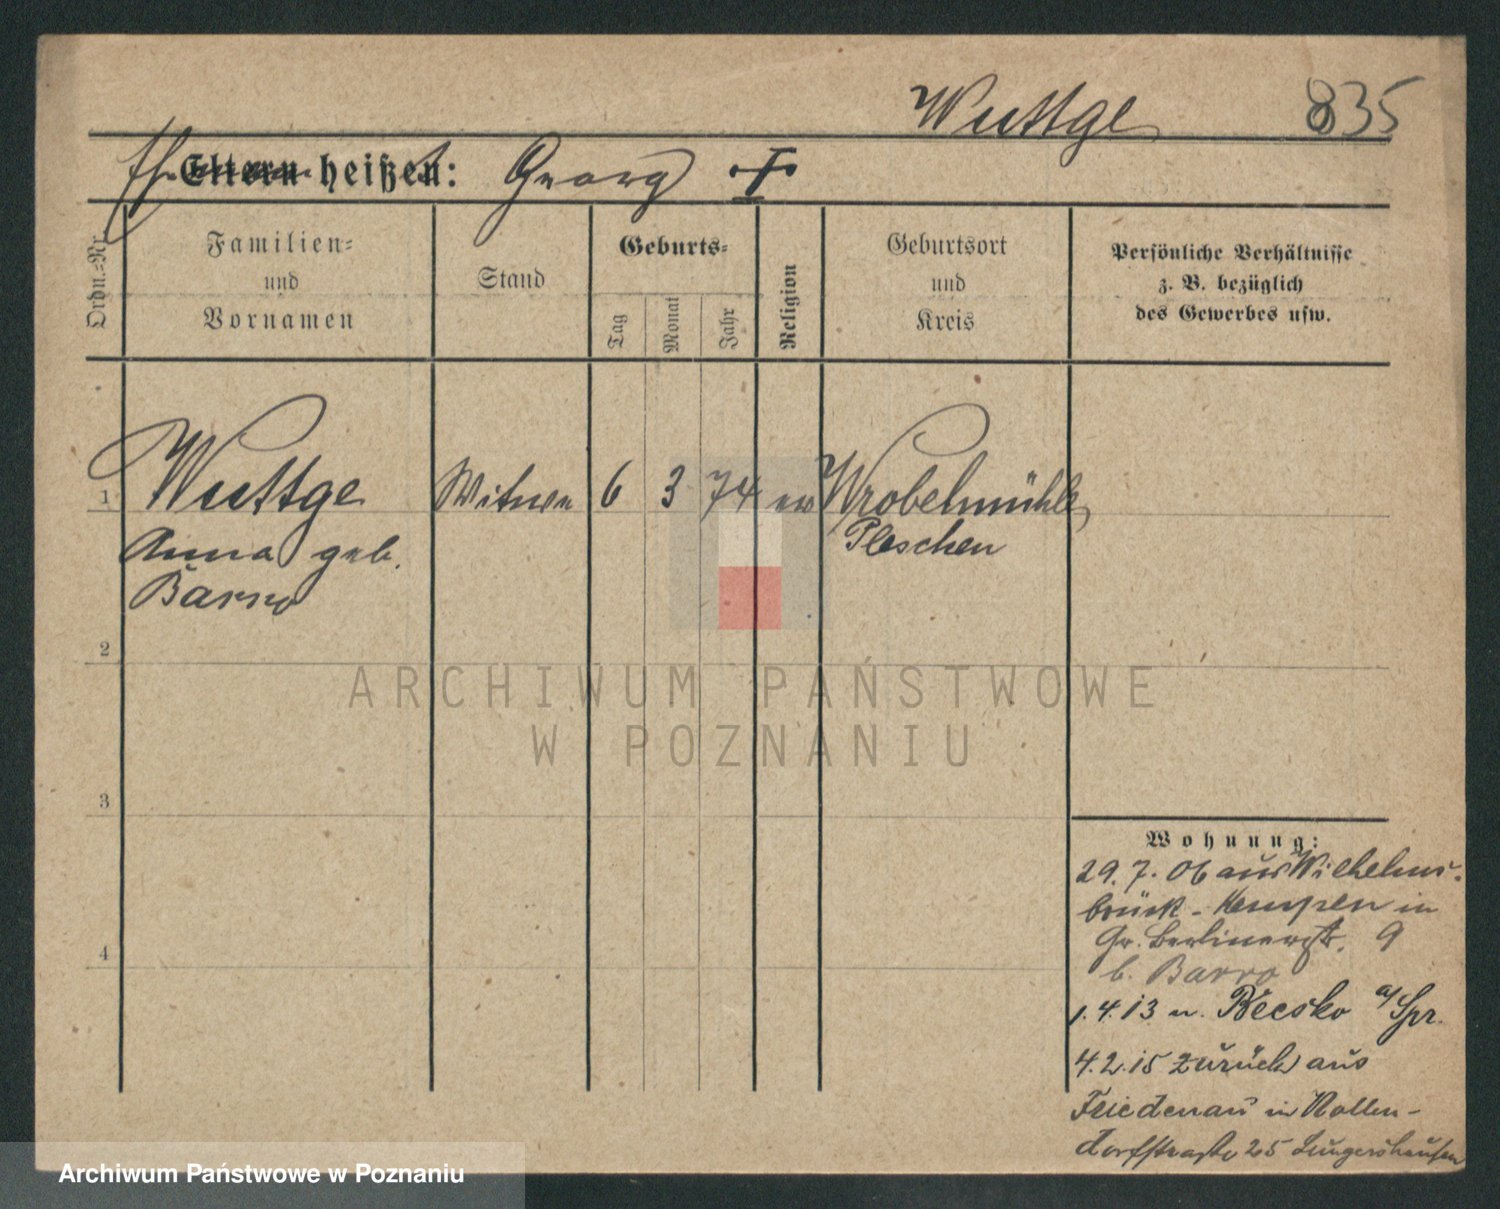 Wuttge 835
Eltern heißen: Georg †
Ordn.-Nr.
Familien-
und
Vornamen
Stand
Geburts-
Tag
Monat
Jahr
Religion
Geburtsort
und
Kreis
Persönliche Verhältnisse
z. B. bezüglich
des Gewerbes usw.
1 Wuttge Witwe 6 3 74 ev Wrobelmühle
Anna geb. Pleschen
Barro
2
ARCHIWUM PAŃSTWOWE
W POZNANIU
3
4
Wohnung:
29.7.06 aus Wilhelms-
brück - Kempen in
Gr. Berlinerstr. 9
b. Barro
1.4.13 n. Beesko a/Spr.
4.2.15 zurück aus
Friedenau in Nollen-
dorfstraße 25
Archiwum Państwowe w Poznaniu